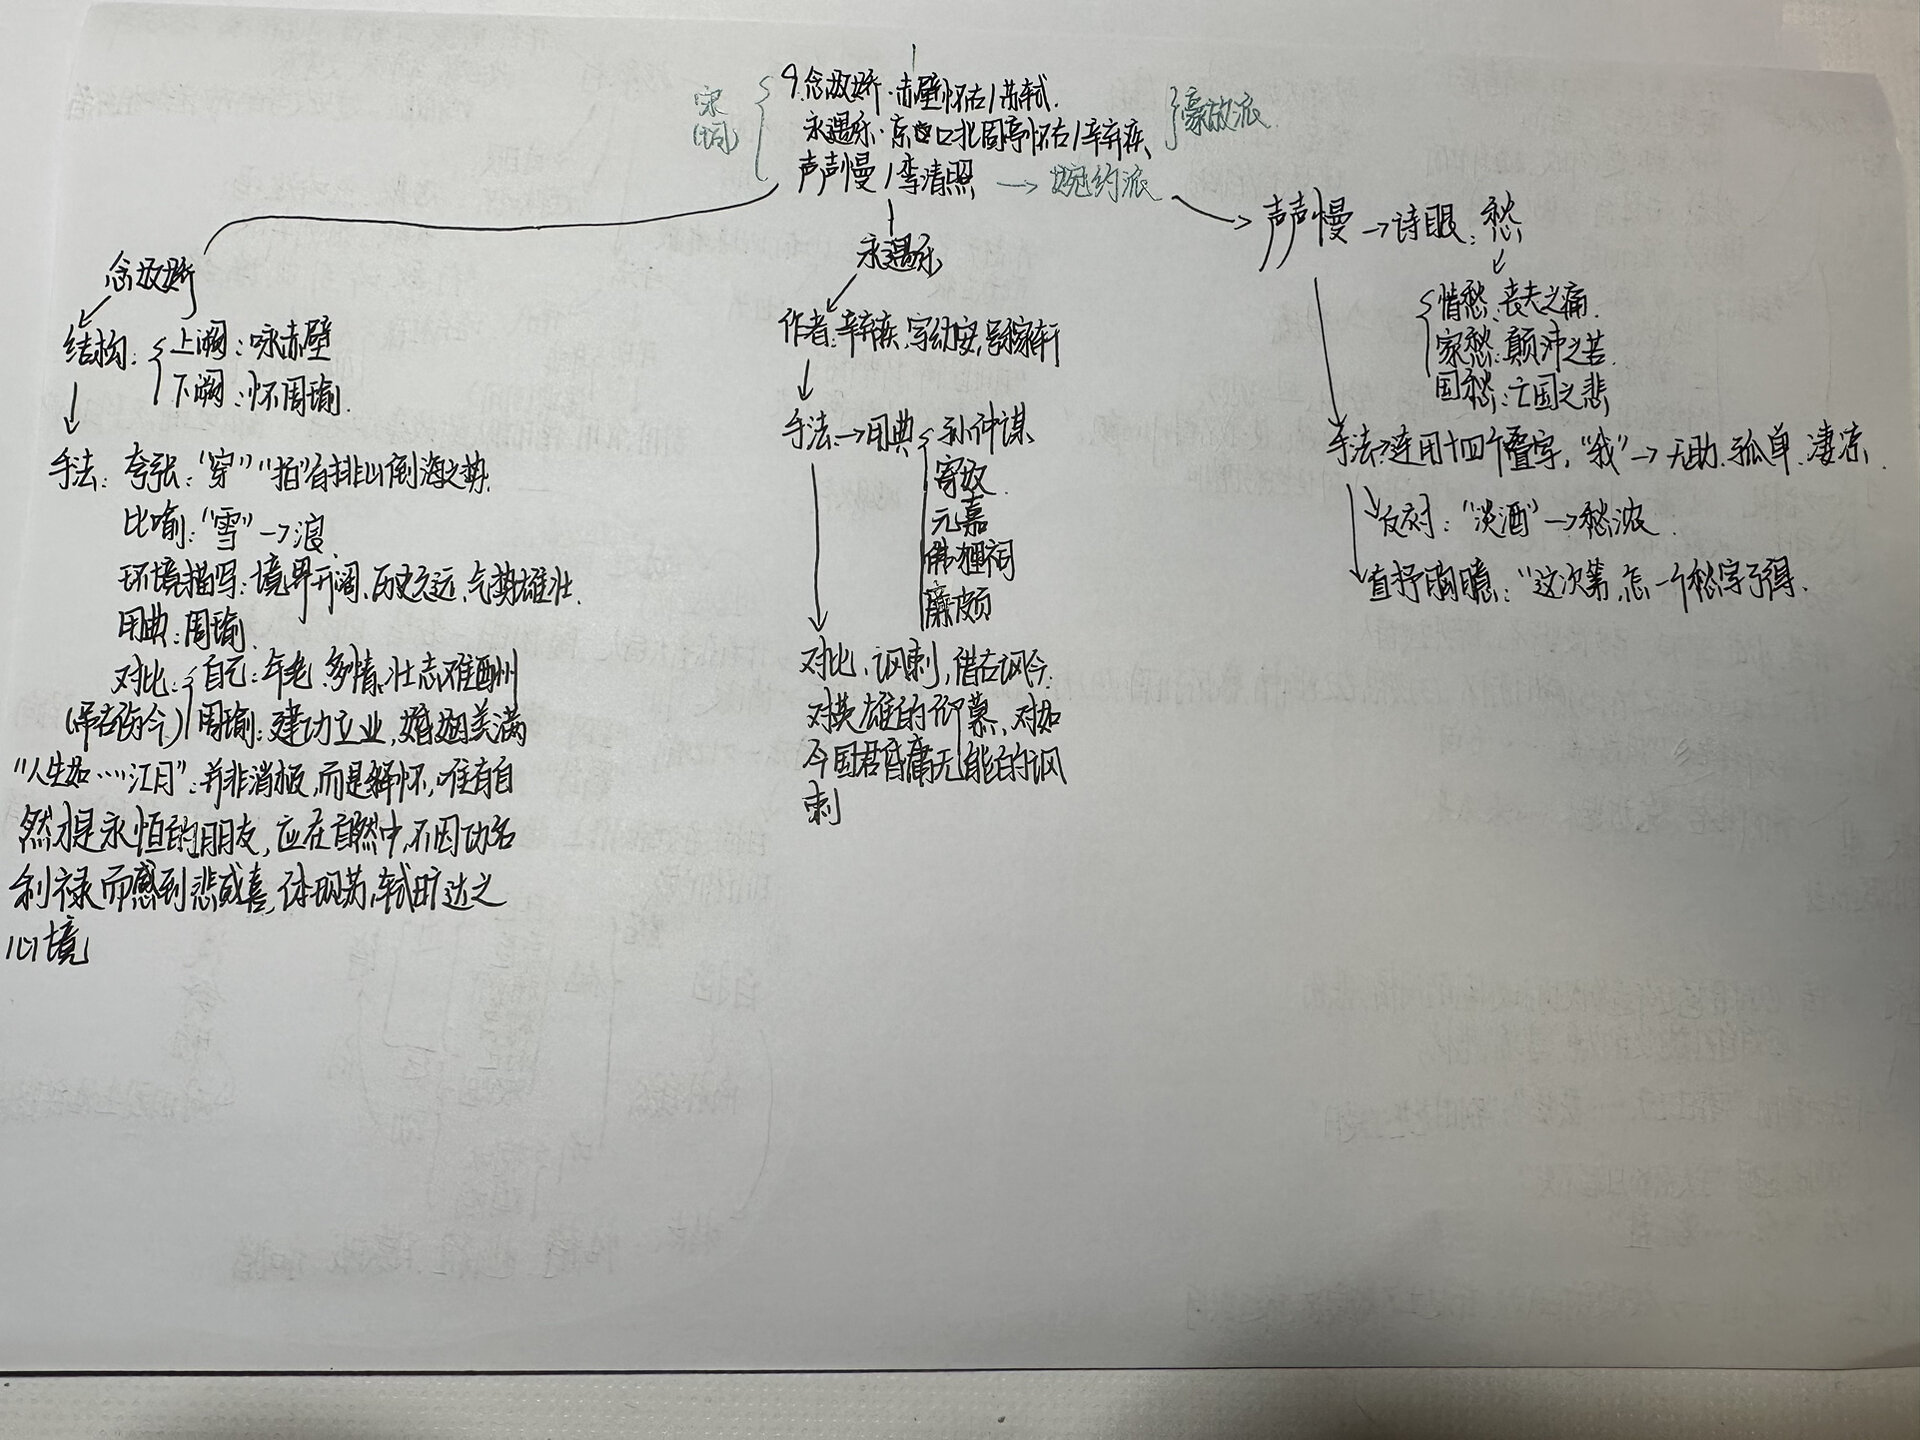 宋
(词)
9.念奴娇·赤壁怀古/苏轼.
永遇乐·京口北固亭怀古/辛弃疾、
豪放派
声声慢/李清照 → 婉约派
声声慢→诗眼:愁
情愁:丧夫之痛.
家愁:颠沛之苦.
国愁:亡国之悲
手法:连用十四个叠字,"我"→无助.孤单.凄凉.
反衬:"淡酒"→愁浓
直抒胸臆:"这次第,怎一个愁字了得.
永遇乐
作者:辛弃疾,字幼安,号稼轩
手法→用典
孙仲谋
寄奴
元嘉
佛狸祠
廉颇
对比、讽刺,借古讽今.
对英雄的仰慕、对如
今国君昏庸无能的讽
刺
念奴娇
结构:
上阕:咏赤壁
下阕:怀周瑜.
手法:夸张:"穿""拍"有排山倒海之势.
比喻:"雪"→浪
环境描写:境界开阔、历史久远、气势雄壮.
用典:周瑜
对比:
自己:年老.多情.壮志难酬
(吊古伤今)
周瑜:建功立业,婚姻美满
"人生如……江月":并非消极,而是释怀,唯有自
然才是永恒的朋友,应在自然中,不因功名
利禄而感到悲或喜,体现苏轼旷达之
心境